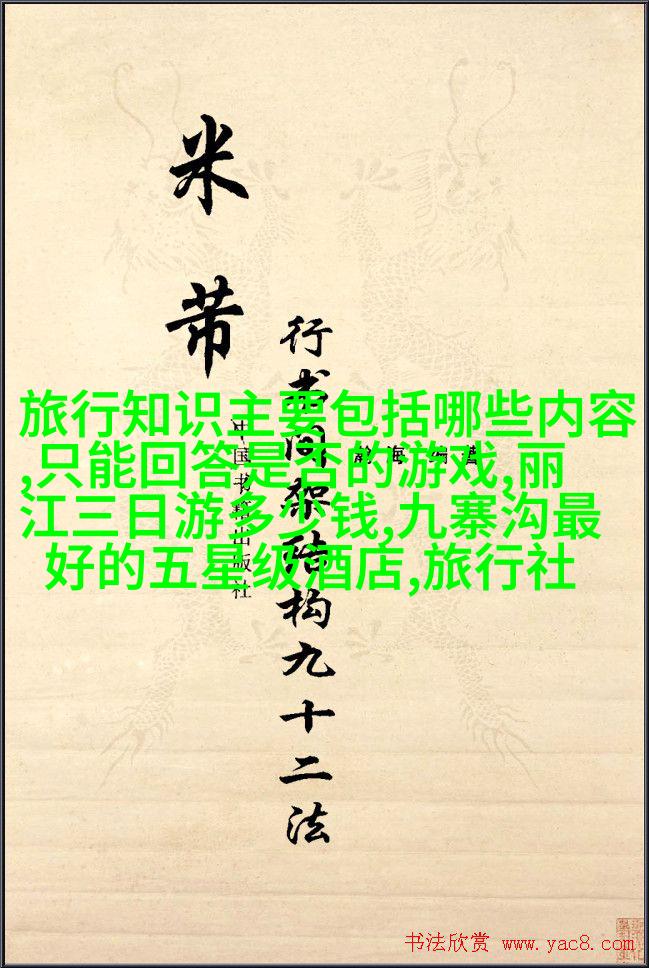 米芾
行书间架结构九十二法
中国书籍出版社
旅行知识主要包括哪些内容
,只能回答是否的游戏,丽
江三日游多少钱,九寨沟最
好的五星级酒店,旅行社
书法欣赏 www.yac8.com